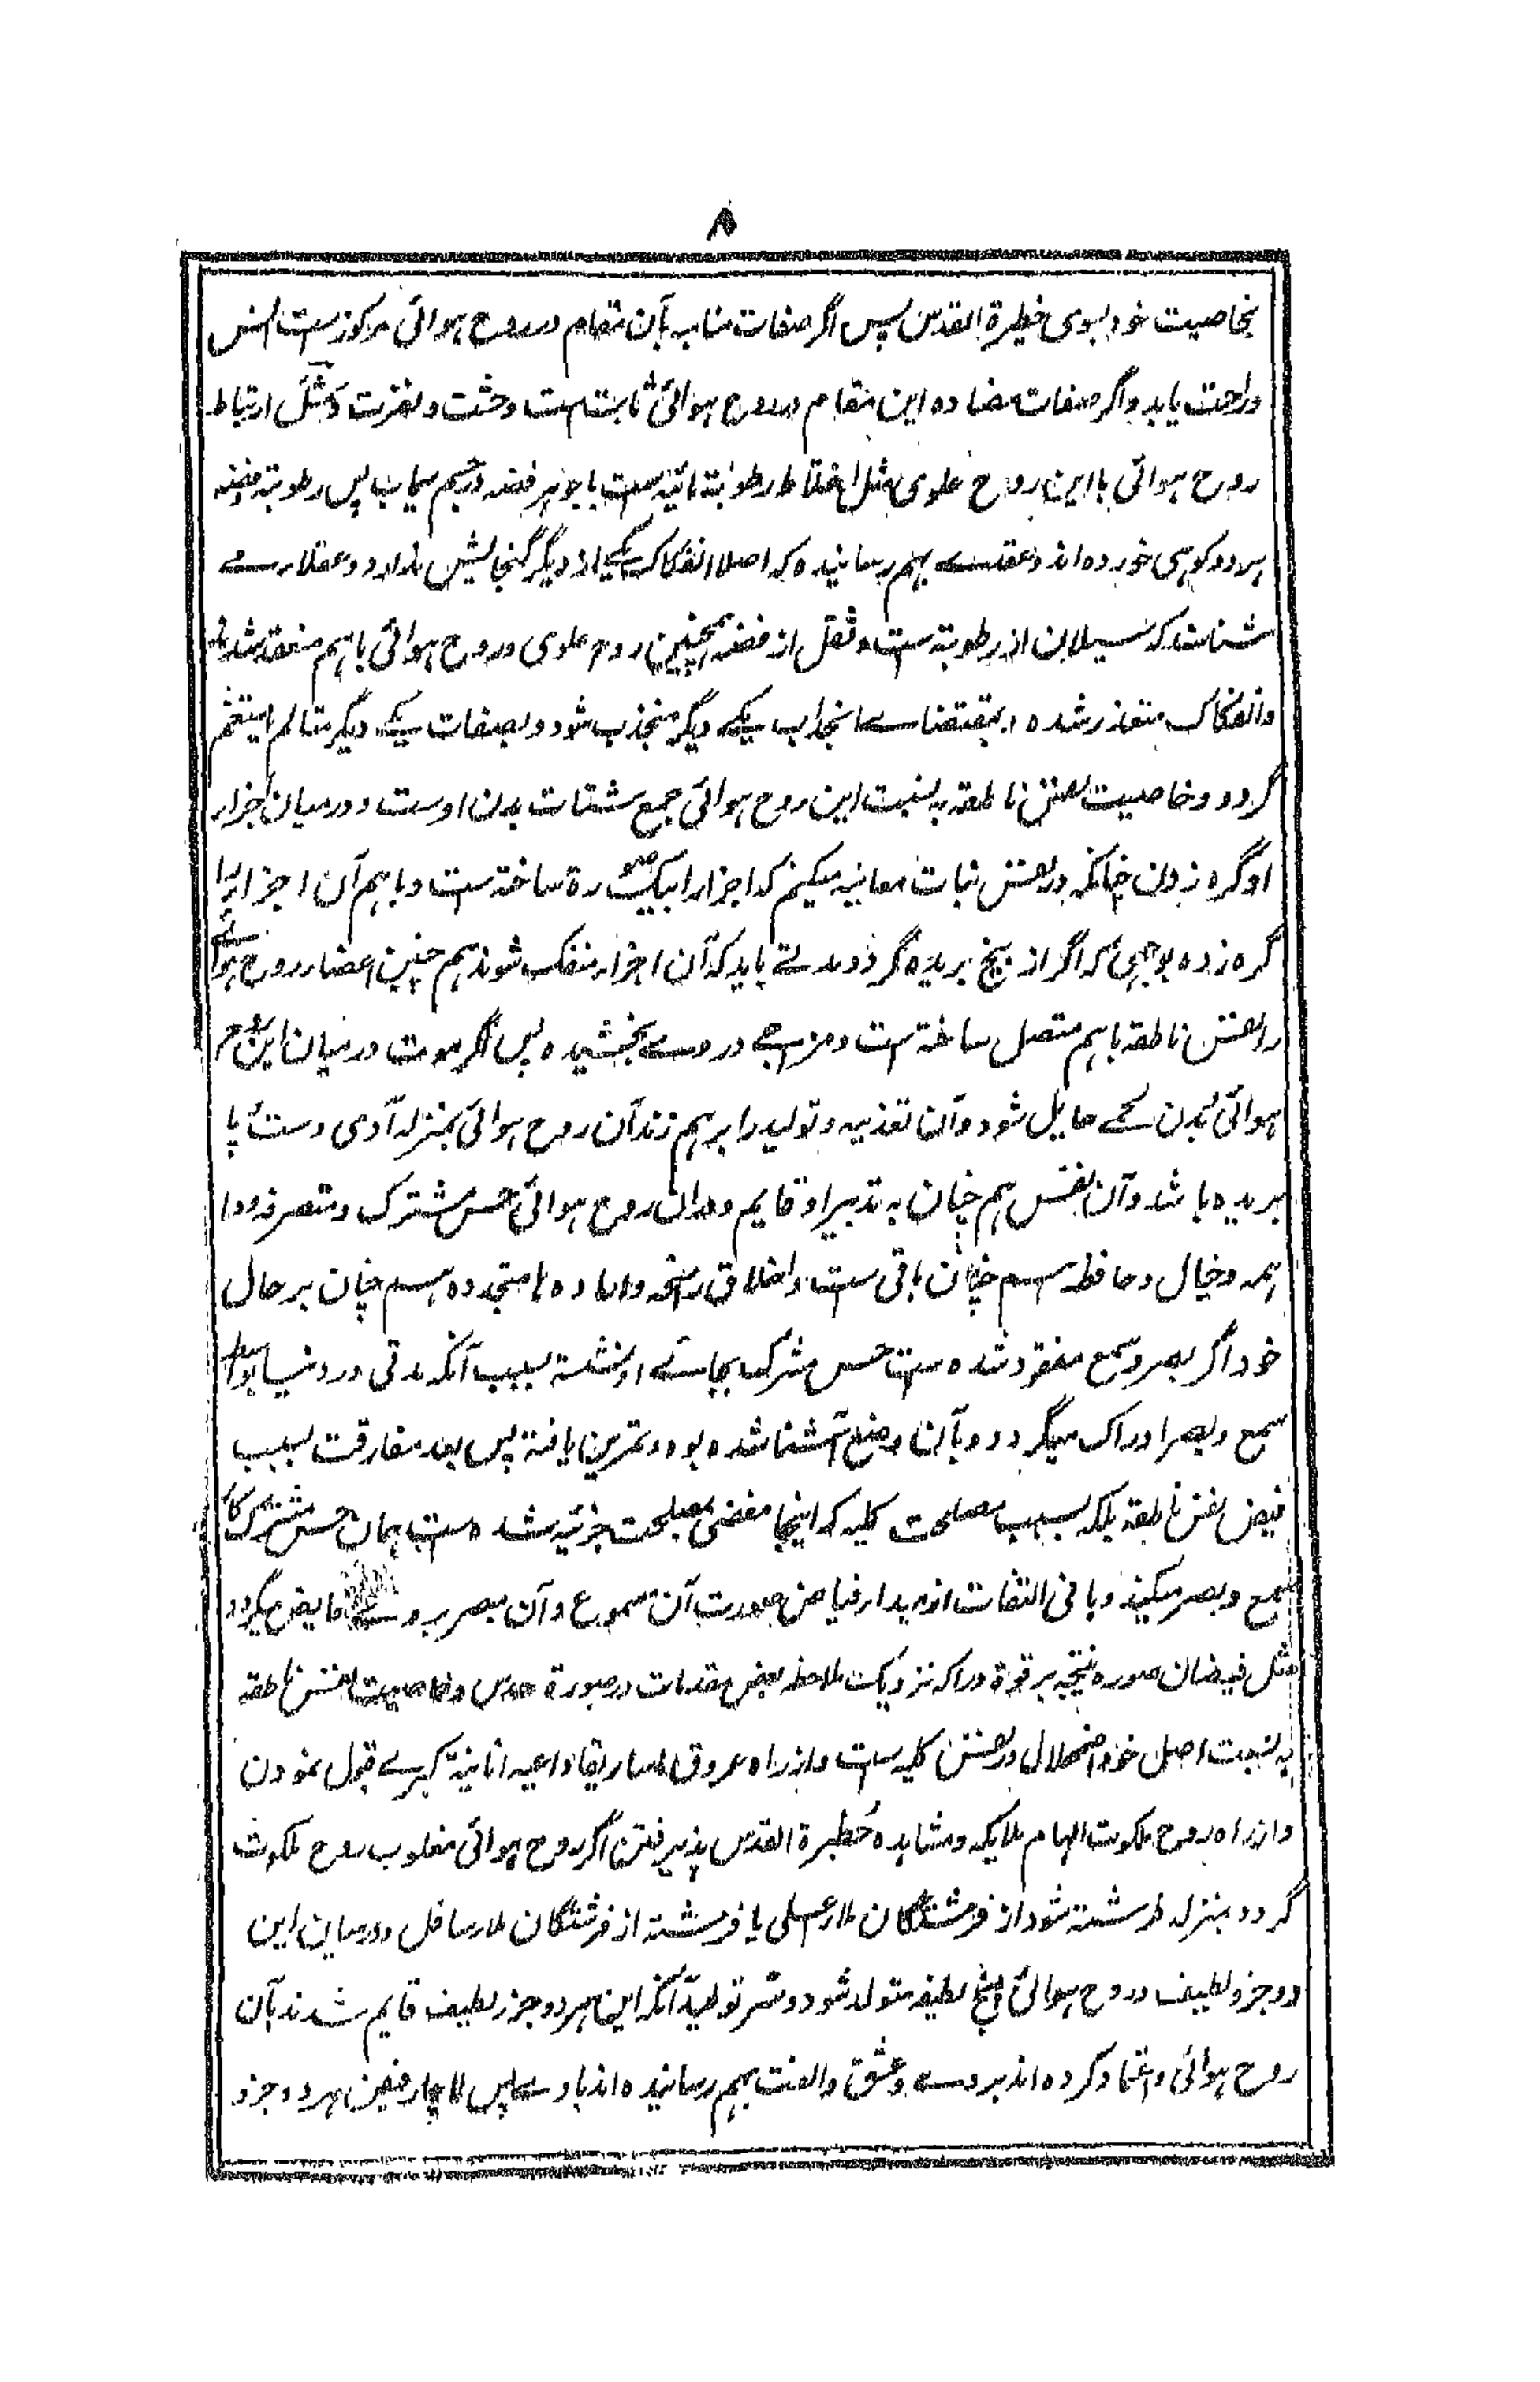 ۸
بخاصیت خود بسوی خطیرة القدس پس اگر صفات مناسبه بآن مقام در روح هوائی مرکوزست انس
وراحت یابد واگر صفات مضاده این مقام در روح هوائی ثابت ست وحشت ونفرت ومثل ارتباط
روح هوائی با این روح علوی مثل اختلاط رطوبة مائیه ست با جوهر فضه در جسم سیماب پس رطوبة وفضه
هر دو کوهی خورده اند وعقدے بهم رسانیده که اصلا انفکاک یکے از دیگر گنجایش ندارد وعقلا مے
شناسند که سیلان از رطوبة ست وثقل از فضه همچنین روح علوی وروح هوائی باهم منعقد شدند
وانفکاک متعذر شده بمقتضاے انجذاب یکے دیگر منجذب شود وبصفات یک دیگر متالم یا متنعم
گردد وخاصیت نفس ناطقه به نسبت این روح هوائی جمع شتات بدن اوست ودرمیان اجزاء
او گره زدن چنانکه در نفس نبات معاینه میکنم که اجزا را یک صورة ساخته ست وباهم آن اجزاء را
گره زده بوجهی که اگر از بیخ بریده گردد مدتے باید که آن اجزاء منفک شوند هم چنین اعضاء روح هوائی
را نفس ناطقه باهم متصل ساخته ست ومزاجے در وے بخشیده پس اگر موت درمیان این روح
هوائی وبدن لحمے حایل شود وآن تغذیه وتولید را برهم زند آن روح هوائی بمنزله آدمی دست وپا
بریده باشد وآن نفس هم چنان به تدبیر او قایم ودران روح هوائی حس مشترک ومتصرفه ووا
همه وخیال وحافظه هم چنان باقی ست واخلاق راسخه واراده ها متجدده هم چنان بر حال
خود اگر بصر وسمع مفقود شده ست حس مشترک بجاے او نشسته بسبب آنکه مدتی در دنیا بواسطه
سمع وبصر ادراک میگردد وبآن وضع آشنا شده بود وتمرین یافته پس بعد مفارقت بسبب
فیض نفس ناطقه بلکه بسبب مصلحت کلیه که اینجا مفضی بمصلحت جزئیه شده ست همان حس مشترک کار
سمع وبصر میکند وبا فی التفات از مبداء فیاض صورت آن مسموع وآن مبصر بروے فایض میگردد
مثل فیضان صوره نتیجه بر قوة دراکه نزدیک ملاحظه بعض مقدمات در صورة حدس وخاصیت نفس ناطقه
به نسبت اصل خود اضمحلال در نفس کلیه ست واز راه عروق ماساریقا داعیه انانیة کبرے قبول نمودن
واز راه روح ملکوت الهام ملایکه ومشاهده خطیرة القدس پذیرفتن اگر روح هوائی مغلوب روح ملکوت
گردد بمنزله فرشته شود از فرشتگان ملاء اعلی یا فرشته از فرشتگان ملاء سافل ودرمیان این
دو جزو لطیف وروح هوائی پنج لطیفه متولد شود وسر تولید آنکه این هر دو جزء لطیف قایم شدند بآن
روح هوائی واعتماد کرده اند بروے وعشق والفت بهم رسانیده اند باوے پس لاچار فیض هر دو جزو